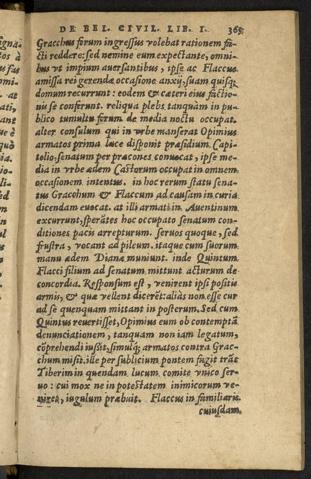 DE BEL. CIVIL. LIB. I. 365
Gracchus forum ingressus volebat rationem fa-
cti reddere: sed nemine eum expectante, omni-
bus vt impium auersantibus, ipse ac Flaccus
amissa rei gerendæ occasione anxij, suam quisq;
domum recurrerunt: eodem & cæteri eius factio-
nis se conferunt. reliqua plebs tanquam in pu-
blico tumultu forum de media noctu occupat.
alter consulum qui in vrbe manserat Opimius
armatos prima luce disponit præsidium. Capi-
tolio: senatum per præcones conuocat, ipse me-
dia in vrbe ædem Castorum occupat in omnem
occasionem intentus. in hoc rerum statu sena-
tus Gracchum & Flaccum ad causam in curia
dicendam euocat. at illi armati in Auentinum
excurrunt, sperātes hoc occupato senatum con-
ditiones pacis arrepturum. seruos quoque, sed
frustra, vocant ad pileum. itaque cum suorum
manu ædem Dianæ muniunt. inde Quintum
Flacci filium ad senatum mittunt acturum de
concordia. Responsum est, venirent ipsi positis
armis, & quæ vellent dicerēt: aliàs non esse cur
ad se quenquam mittant in posterum. Sed cum
Quintus reuertisset, Opimius eum ob contemptā
denunciationem, tanquam non iam legatum,
cōprehendi iussit, simulq; armatos contra Grac-
chum misit. ille per sublicium pontem fugit trās
Tiberim in quendam lucum. comite vnico ser-
uo: cui mox ne in potestatem inimicorum ve-
niret, iugulum præbuit. Flaccus in familiaris
cuiusdam